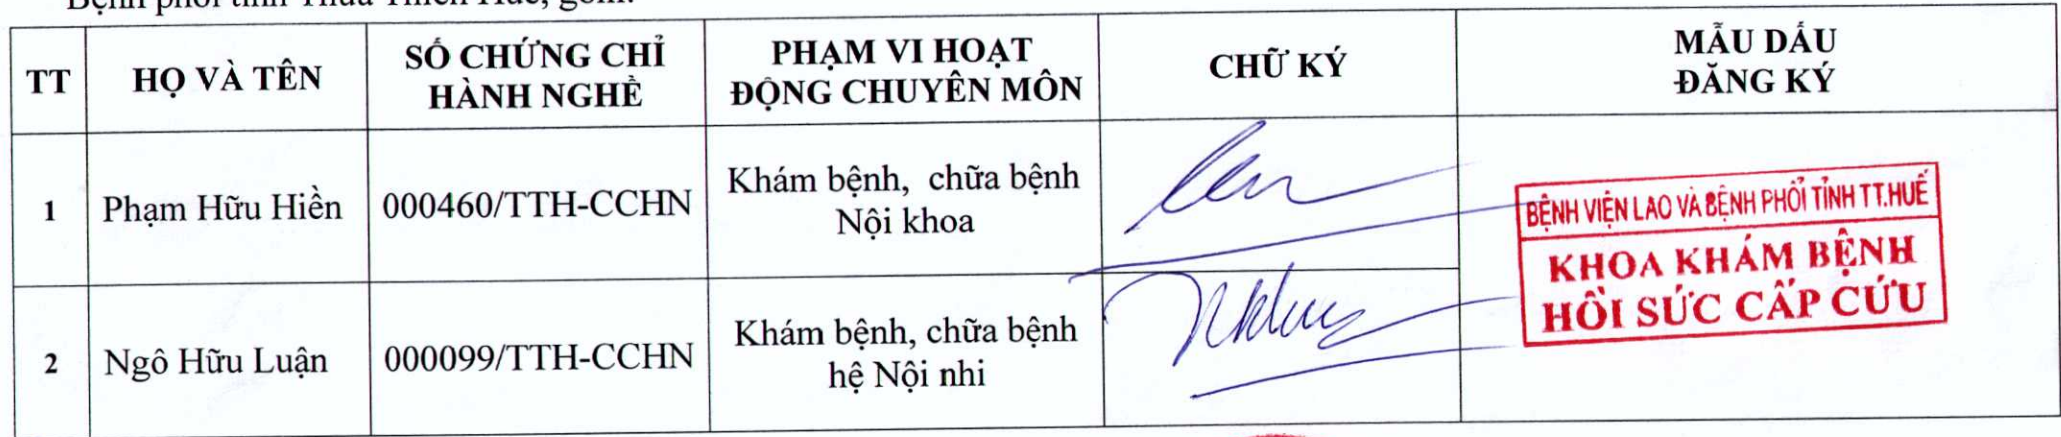 Bệnh phổi tỉnh Thừa Thiên Huế, gồm:
TT
HỌ VÀ TÊN
SỐ CHỨNG CHỈ
HÀNH NGHỀ
PHẠM VI HOẠT
ĐỘNG CHUYÊN MÔN
CHỮ KÝ
MẪU DẤU
ĐĂNG KÝ
1
Phạm Hữu Hiền
000460/TTH-CCHN
Khám bệnh, chữa bệnh
Nội khoa
BỆNH VIỆN LAO VÀ BỆNH PHỔI TỈNH TT.HUẾ
KHOA KHÁM BỆNH
HỒI SỨC CẤP CỨU
2
Ngô Hữu Luận
000099/TTH-CCHN
Khám bệnh, chữa bệnh
hệ Nội nhi